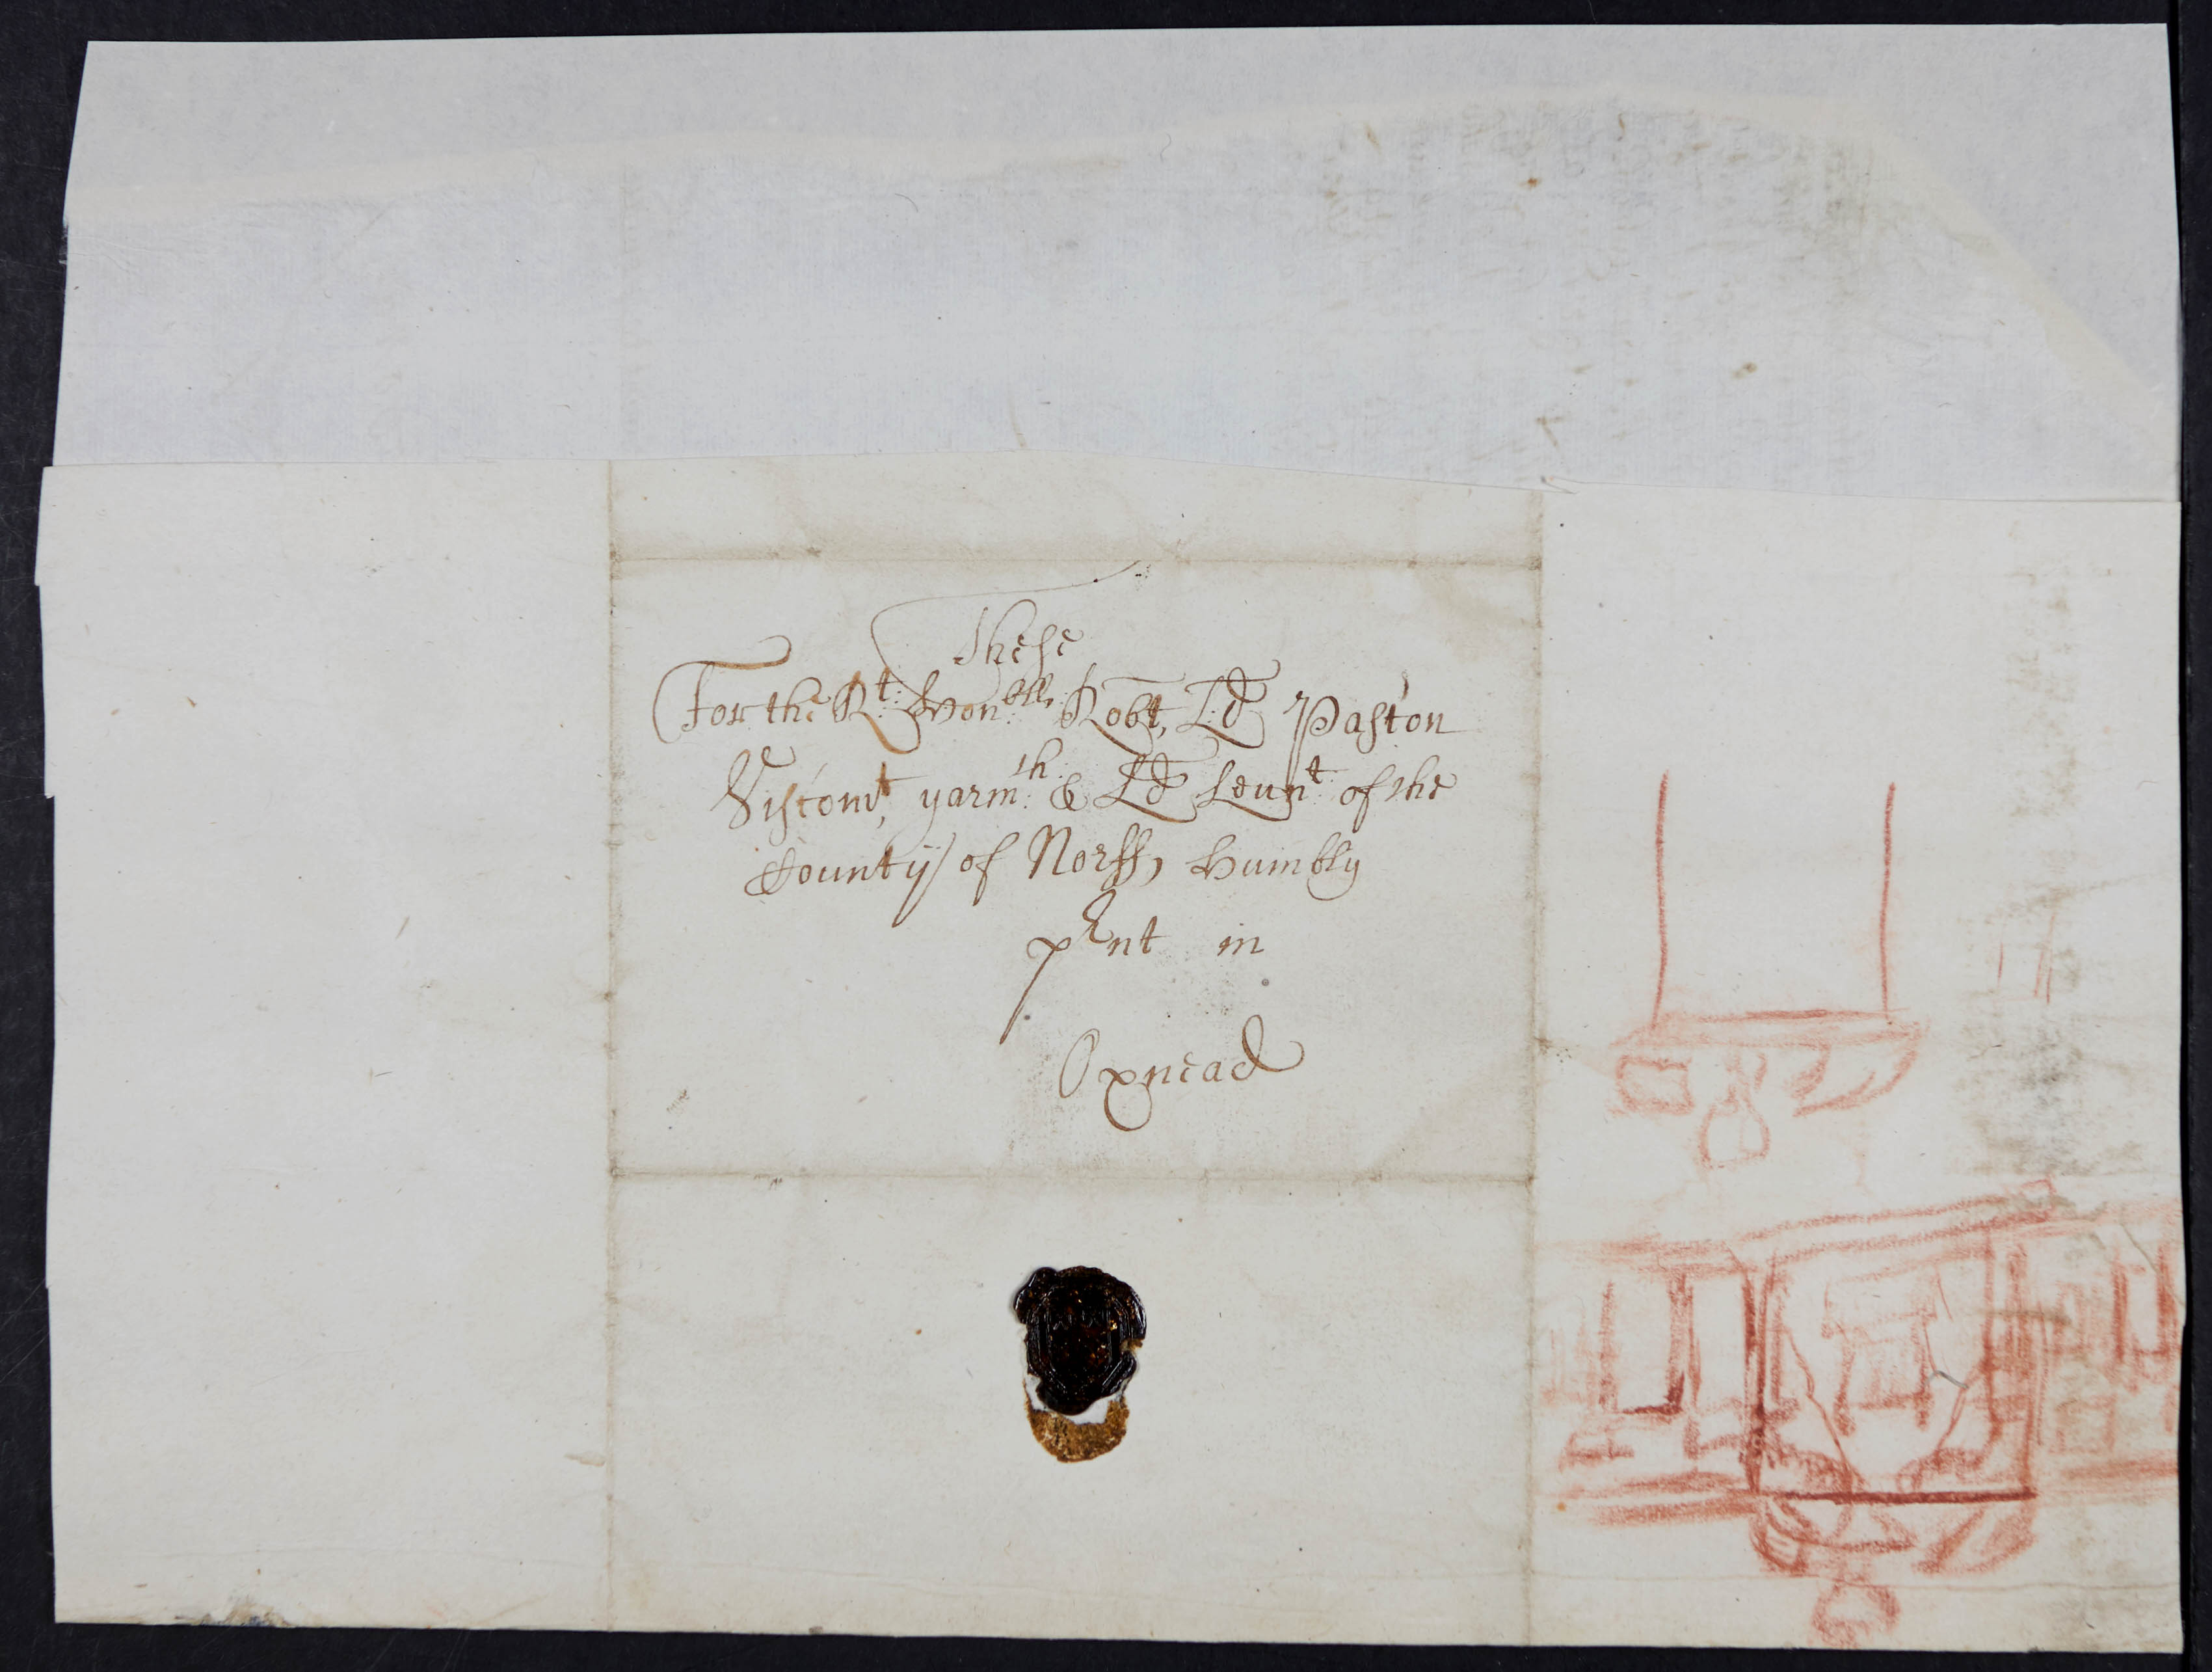 These
For the Rt: Honble: Robt, Ld Paston
Viscomt, yarmth: & Ld Leunt: of the
County of Norff, humbly
psnt in
Oxnead